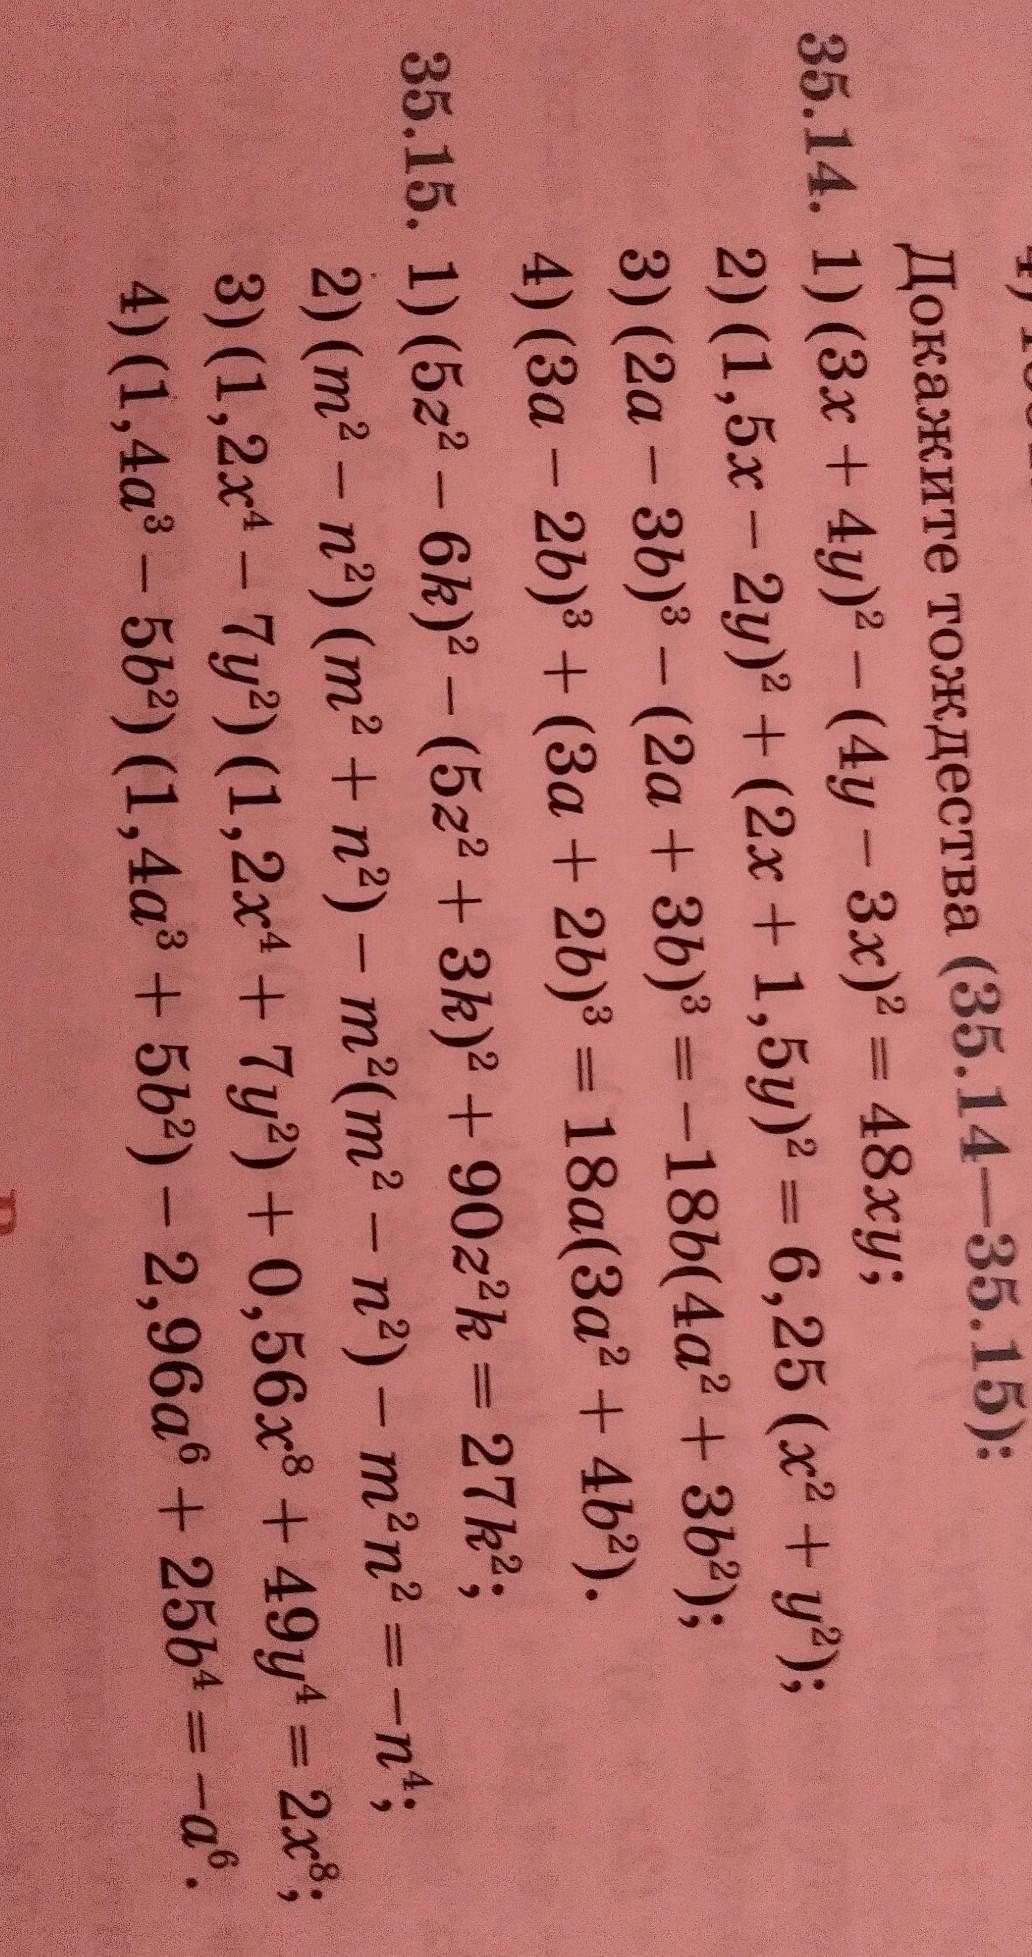 Докажите тождества (35.14—35.15):
35.14. 1) (3x + 4y)² − (4y − 3x)² = 48xy;
2) (1,5x − 2y)² + (2x + 1,5y)² = 6,25 (x² + y²);
3) (2a − 3b)³ − (2a + 3b)³ = −18b(4a² + 3b²);
4) (3a − 2b)³ + (3a + 2b)³ = 18a(3a² + 4b²).
35.15. 1) (5z² − 6k)² − (5z² + 3k)² + 90z²k = 27k²;
2) (m² − n²) (m² + n²) − m²(m² − n²) − m²n² = −n⁴;
3) (1,2x⁴ − 7y²) (1,2x⁴ + 7y²) + 0,56x⁸ + 49y⁴ = 2x⁸;
4) (1,4a³ − 5b²) (1,4a³ + 5b²) − 2,96a⁶ + 25b⁴ = −a⁶.